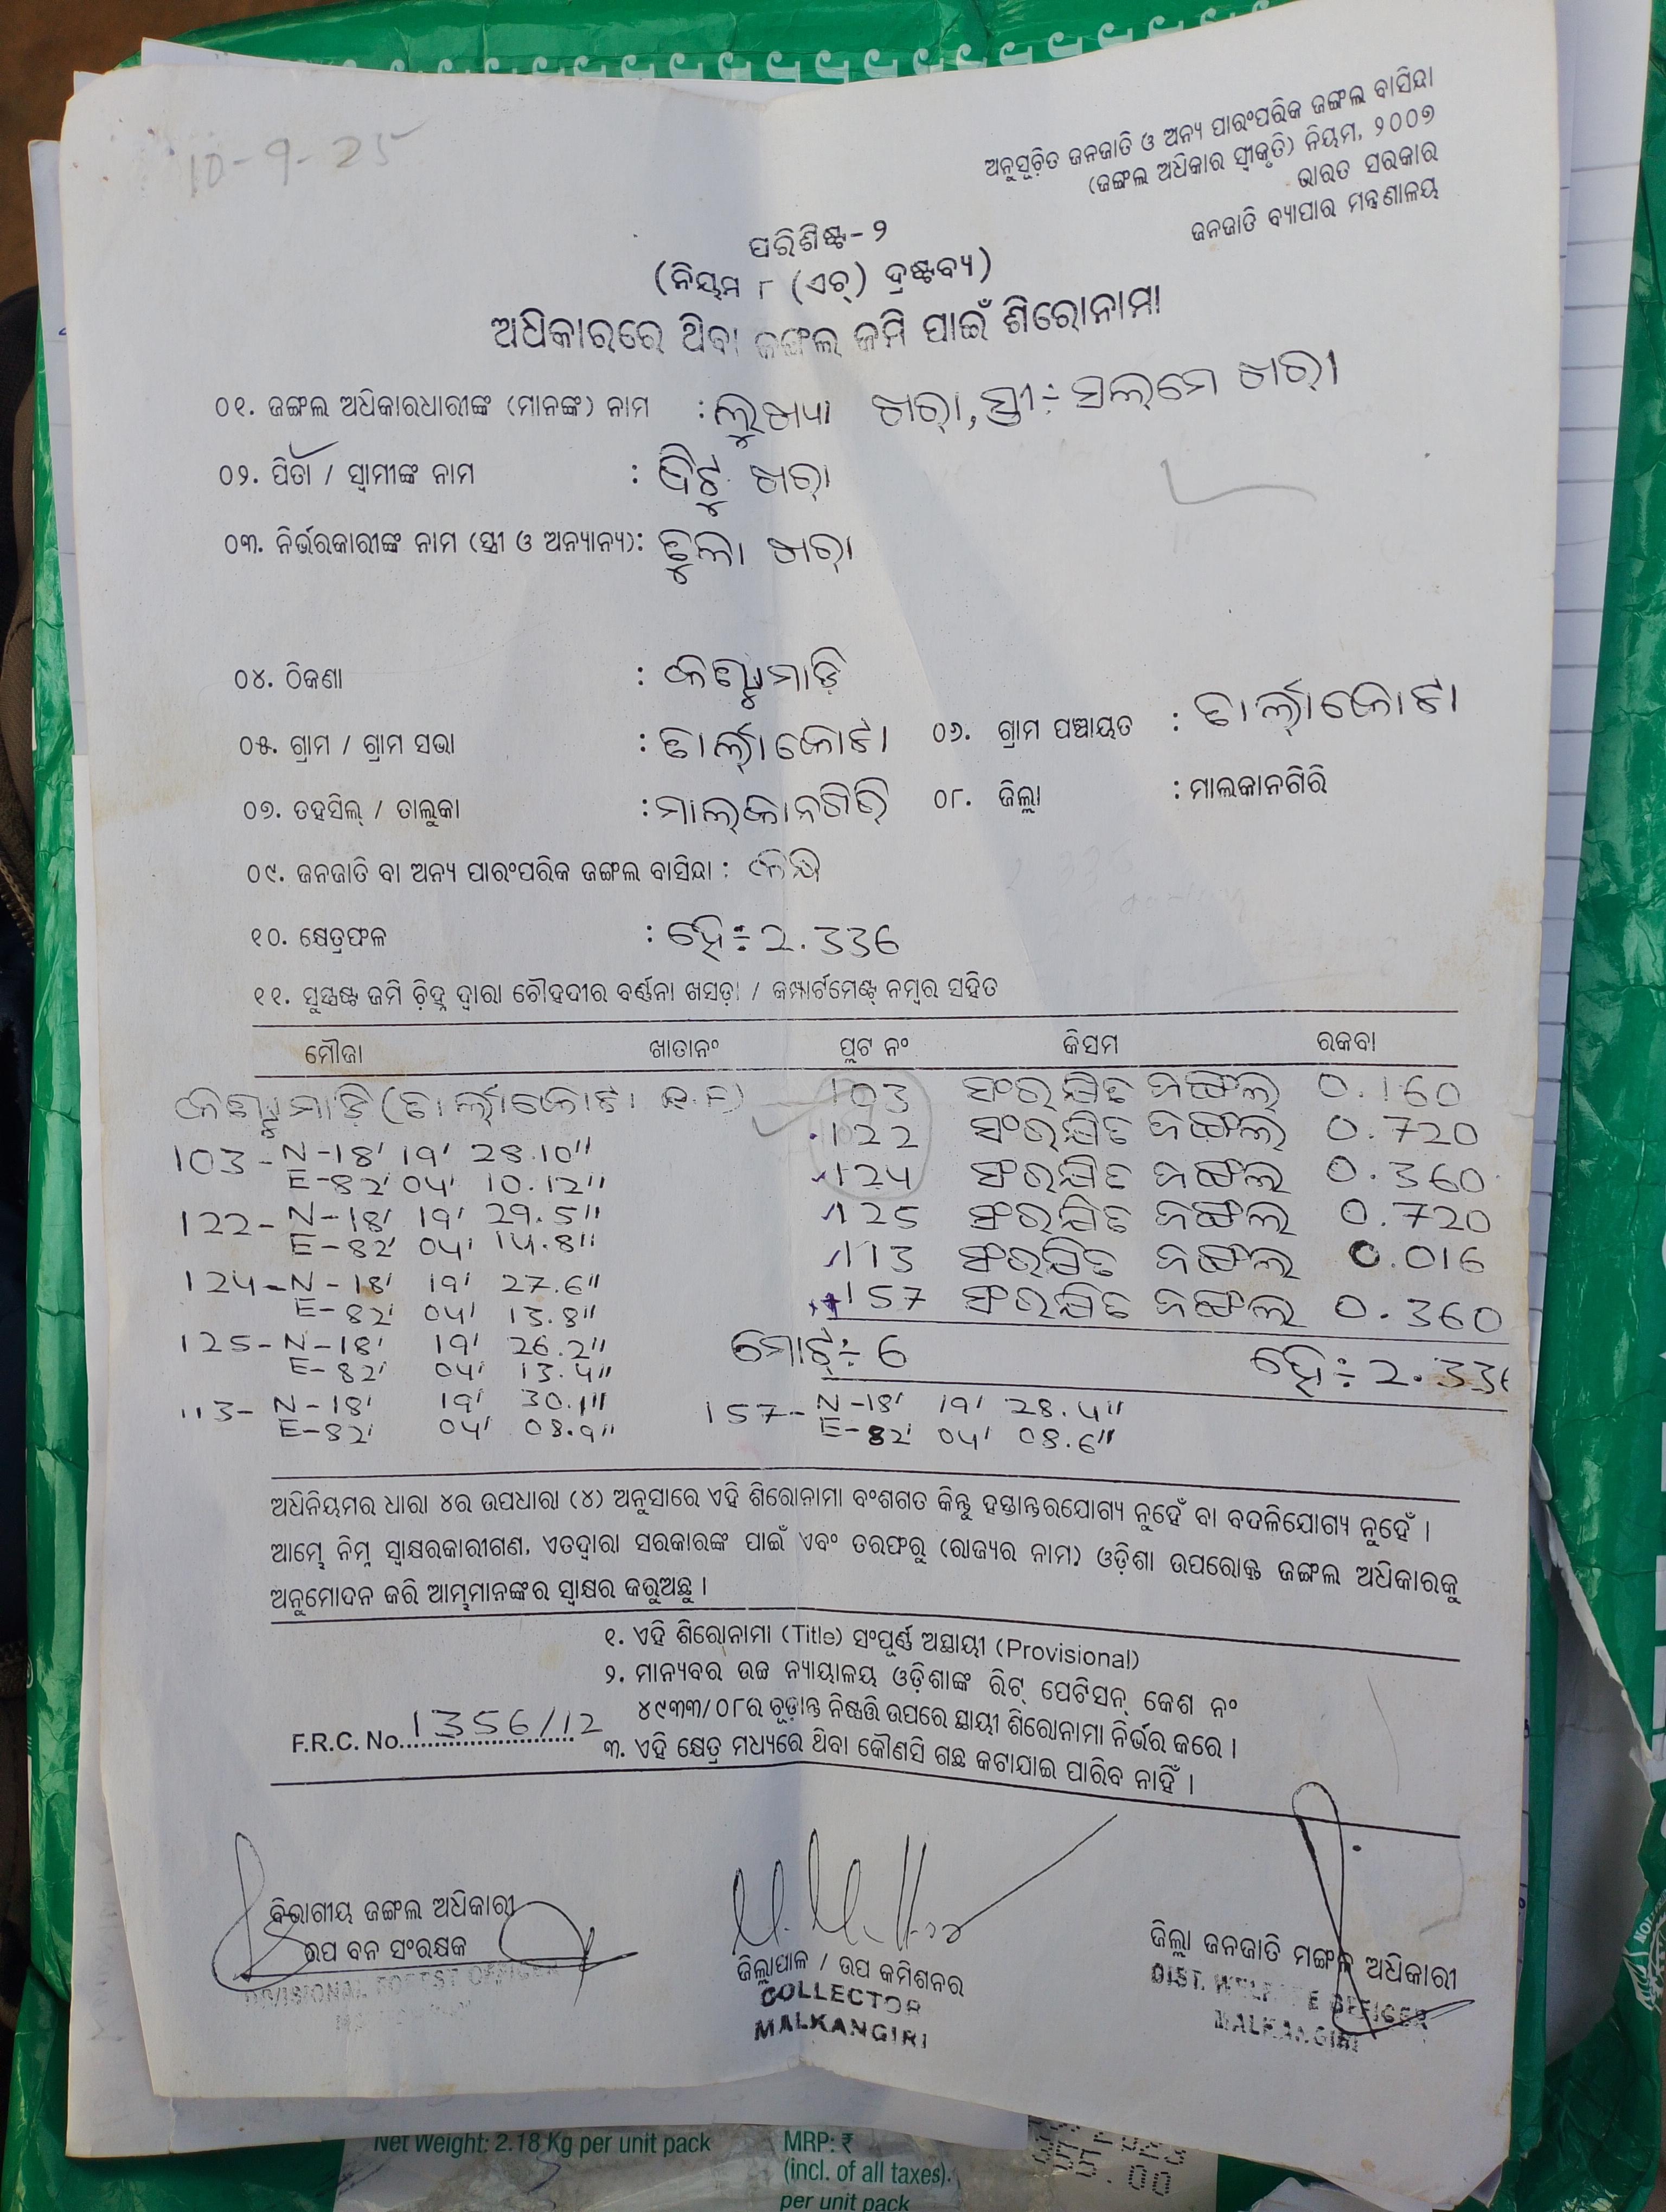 10-9-25
ଅନୁସୂଚିତ ଜନଜାତି ଓ ଅନ୍ୟ ପାରଂପରିକ ଜଙ୍ଗଲ ବାସିନ୍ଦା
(ଜଙ୍ଗଲ ଅଧିକାର ସ୍ଵୀକୃତି) ନିୟମ, ୨୦୦୭
ଭାରତ ସରକାର
ଜନଜାତି ବ୍ୟାପାର ମନ୍ତ୍ରଣାଳୟ
ପରିଶିଷ୍ଟ-୨
(ନିୟମ ୮ (ଏଚ୍) ଦ୍ରଷ୍ଟବ୍ୟ)
ଅଧିକାରରେ ଥିବା ଜଙ୍ଗଲ ଜମି ପାଇଁ ଶିରୋନାମା
୦୧. ଜଙ୍ଗଲ ଅଧିକାରଧାରୀଙ୍କ (ମାନଙ୍କ) ନାମ : ଲୁଖ୍ୟା ଖରା, ସ୍ତ୍ରୀ÷ ସଲ୍‌ମେ ଖରା
୦୨. ପିତା / ସ୍ଵାମୀଙ୍କ ନାମ : ଖରା
୦୩. ନିର୍ଭରକାରୀଙ୍କ ନାମ (ସ୍ତ୍ରୀ ଓ ଅନ୍ୟାନ୍ୟ): ଖରା
୦୪. ଠିକଣା :
୦୫. ଗ୍ରାମ / ଗ୍ରାମ ସଭା : ତାର୍ଲାକୋଟା ୦୬. ଗ୍ରାମ ପଞ୍ଚାୟତ : ତାର୍ଲାକୋଟା
୦୭. ତହସିଲ୍ / ତାଲୁକା : ମାଲ୍‌କାନଗିରି ୦୮. ଜିଲ୍ଲା : ମାଲକାନଗିରି
୦୯. ଜନଜାତି ବା ଅନ୍ୟ ପାରଂପରିକ ଜଙ୍ଗଲ ବାସିନ୍ଦା :
୧୦. କ୍ଷେତ୍ରଫଳ : ହେ÷ 2.336
୧୧. ସୁସ୍ପଷ୍ଟ ଜମି ଚିହ୍ନ ଦ୍ଵାରା ଚୌହଦୀର ବର୍ଣ୍ଣନା ଖସଡ଼ା / କମ୍ପାର୍ଟମେଣ୍ଟ୍ ନମ୍ବର ସହିତ
ମୌଜା ଖାତାନଂ ପ୍ଲଟ ନଂ କିସମ ରକବା
(ତାର୍ଲାକୋଟା R.F) 103 ସଂରକ୍ଷିତ ଜଙ୍ଗଲ 0.160
122 ସଂରକ୍ଷିତ ଜଙ୍ଗଲ 0.720
124 ସଂରକ୍ଷିତ ଜଙ୍ଗଲ 0.360
125 ସଂରକ୍ଷିତ ଜଙ୍ଗଲ 0.720
113 ସଂରକ୍ଷିତ ଜଙ୍ଗଲ 0.016
157 ସଂରକ୍ଷିତ ଜଙ୍ଗଲ 0.360
ମୋଟ୍÷ 6 ହେ÷ 2.336
103- N-18' 19' 28.10"
E-82' 04' 10.12"
122- N-18' 19' 29.5"
E-82' 04' 14.8"
124- N-18' 19' 27.6"
E-82' 04' 13.8"
125- N-18' 19' 26.2"
E-82' 04' 13.4"
113- N-18' 19' 30.1"
E-82' 04' 08.9"
157- N-18' 19' 28.4"
E-82' 04' 08.6"
ଅଧିନିୟମର ଧାରା ୪ର ଉପଧାରା (୪) ଅନୁସାରେ ଏହି ଶିରୋନାମା ବଂଶଗତ କିନ୍ତୁ ହସ୍ତାନ୍ତରଯୋଗ୍ୟ ନୁହେଁ ବା ବଦଳିଯୋଗ୍ୟ ନୁହେଁ ।
ଆମ୍ଭେ ନିମ୍ନ ସ୍ଵାକ୍ଷରକାରୀଗଣ, ଏତଦ୍ଵାରା ସରକାରଙ୍କ ପାଇଁ ଏବଂ ତରଫରୁ (ରାଜ୍ୟର ନାମ) ଓଡ଼ିଶା ଉପରୋକ୍ତ ଜଙ୍ଗଲ ଅଧିକାରକୁ
ଅନୁମୋଦନ କରି ଆମ୍ଭମାନଙ୍କର ସ୍ଵାକ୍ଷର କରୁଅଛୁ ।
୧. ଏହି ଶିରୋନାମା (Title) ସଂପୂର୍ଣ୍ଣ ଅସ୍ଥାୟୀ (Provisional)
୨. ମାନ୍ୟବର ଉଚ୍ଚ ନ୍ୟାୟାଳୟ ଓଡ଼ିଶାଙ୍କ ରିଟ୍ ପେଟିସନ୍ କେଶ ନଂ
୪୯୩୩/୦୮ର ଚୂଡ଼ାନ୍ତ ନିଷ୍ପତ୍ତି ଉପରେ ସ୍ଥାୟୀ ଶିରୋନାମା ନିର୍ଭର କରେ ।
F.R.C. No. 1356/12
୩. ଏହି କ୍ଷେତ୍ର ମଧ୍ୟରେ ଥିବା କୌଣସି ଗଛ କଟାଯାଇ ପାରିବ ନାହିଁ ।
ବିଭାଗୀୟ ଜଙ୍ଗଲ ଅଧିକାରୀ
ଉପ ବନ ସଂରକ୍ଷକ
DIVISIONAL FOREST OFFICER
ଜିଲ୍ଲାପାଳ / ଉପ କମିଶନର
COLLECTOR
MALKANGIRI
ଜିଲ୍ଲା ଜନଜାତି ମଙ୍ଗଳ ଅଧିକାରୀ
DIST. WELFARE OFFICER
MALKANGIRI
Net Weight: 2.18 Kg per unit pack
MRP: ₹
(incl. of all taxes).
per unit pack
355.00